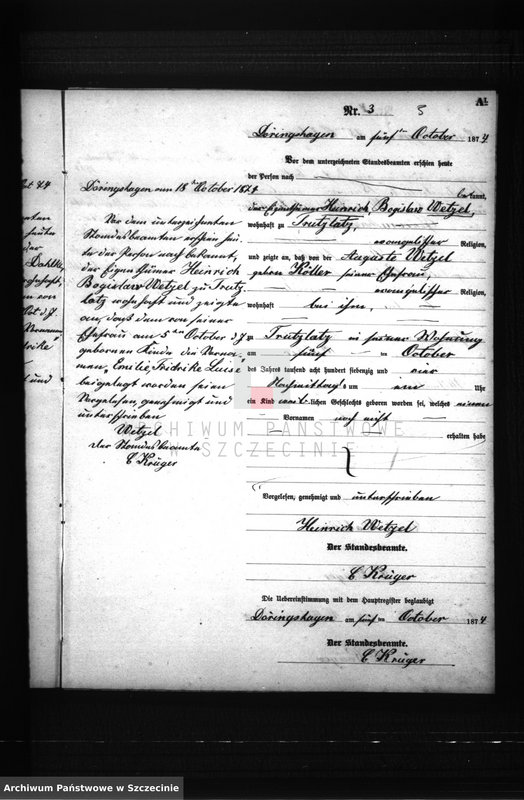 Nr. 3
A1
Döringshagen am fünften October 1874
Vor dem unterzeichneten Standesbeamten erschien heute
der Person nach
bekannt,
der Eigenthümer Heinrich Bogislaw Wetzel,
wohnhaft zu Trutzlatz,
evangelischer Religion,
und zeigte an, daß von der Auguste Wetzel
geboren Köller seiner Ehefrau,
evangelischer Religion,
wohnhaft bei ihm,
zu Trutzlatz in seiner Wohnung
am fünften October
des Jahres tausend acht hundert siebenzig und vier
Nachmittags um ein Uhr
ein Kind weiblichen Geschlechts geboren worden sei, welches einen
Vornamen noch nicht
erhalten habe
Vorgelesen, genehmigt und unterschrieben
Heinrich Wetzel
Der Standesbeamte.
C Krüger
Die Uebereinstimmung mit dem Hauptregister beglaubigt
Döringshagen am fünften October 1874
Der Standesbeamte.
C Krüger
Döringshagen am 18ten October 1874
Vor dem unterzeichneten
Standesbeamten erschien heu-
te der Person nach bekannt,
der Eigenthümer Heinrich
Bogislaw Wetzel zu Trutz-
latz wohnhaft und zeigte
an, daß dem von seiner
Ehefrau am 5ten October d J
geborenen Kinde die Vorna-
men, Emilie, Fridrike Luise
beigelegt worden seien
Vorgelesen, genehmigt und
unterschrieben
Wetzel
Der Standesbeamte
C Krüger
ARCHIWUM PAŃSTWOWE
W SZCZECINIE
Archiwum Państwowe w Szczecinie